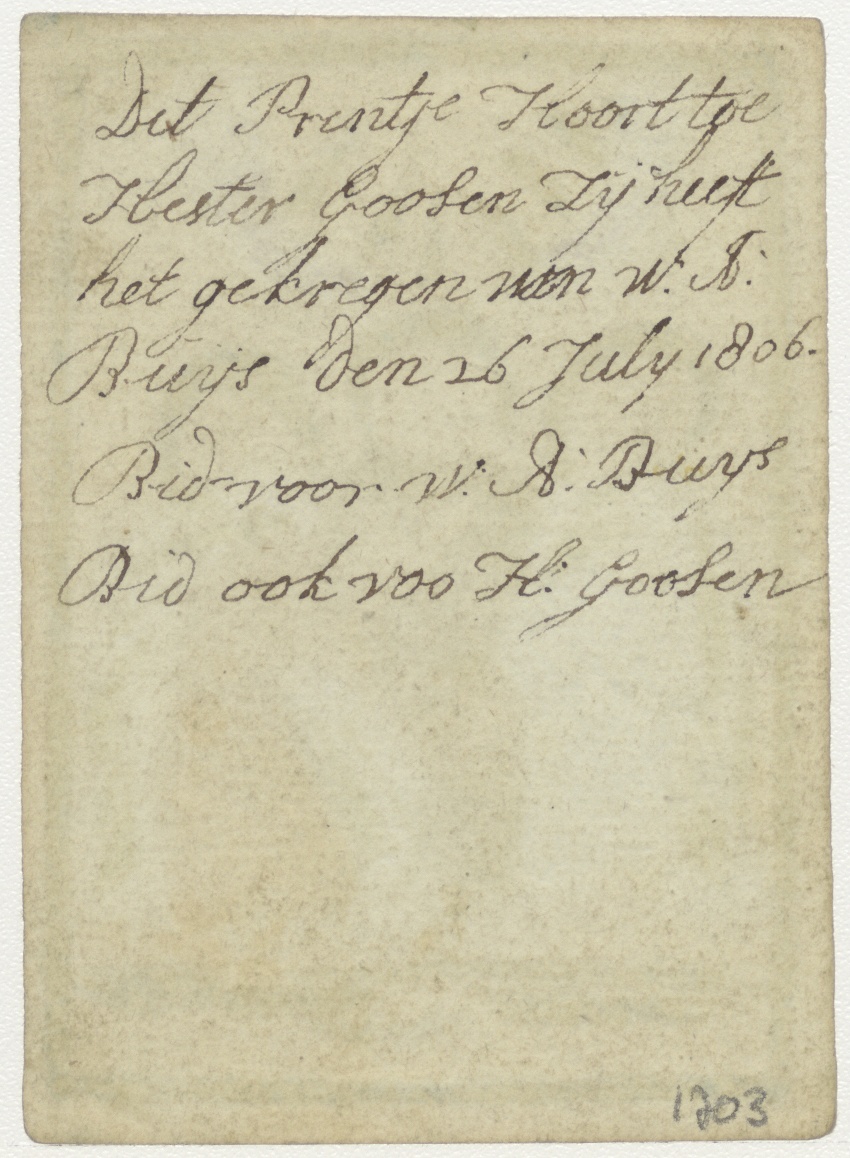 Dit Printje Hoort toe
Hester Goosen Zij heeft
het gekregen van W: A:
Buijs den 26 July 1806.
Bid voor W: A: Buys
Bid ook voo H: Goosen
1703